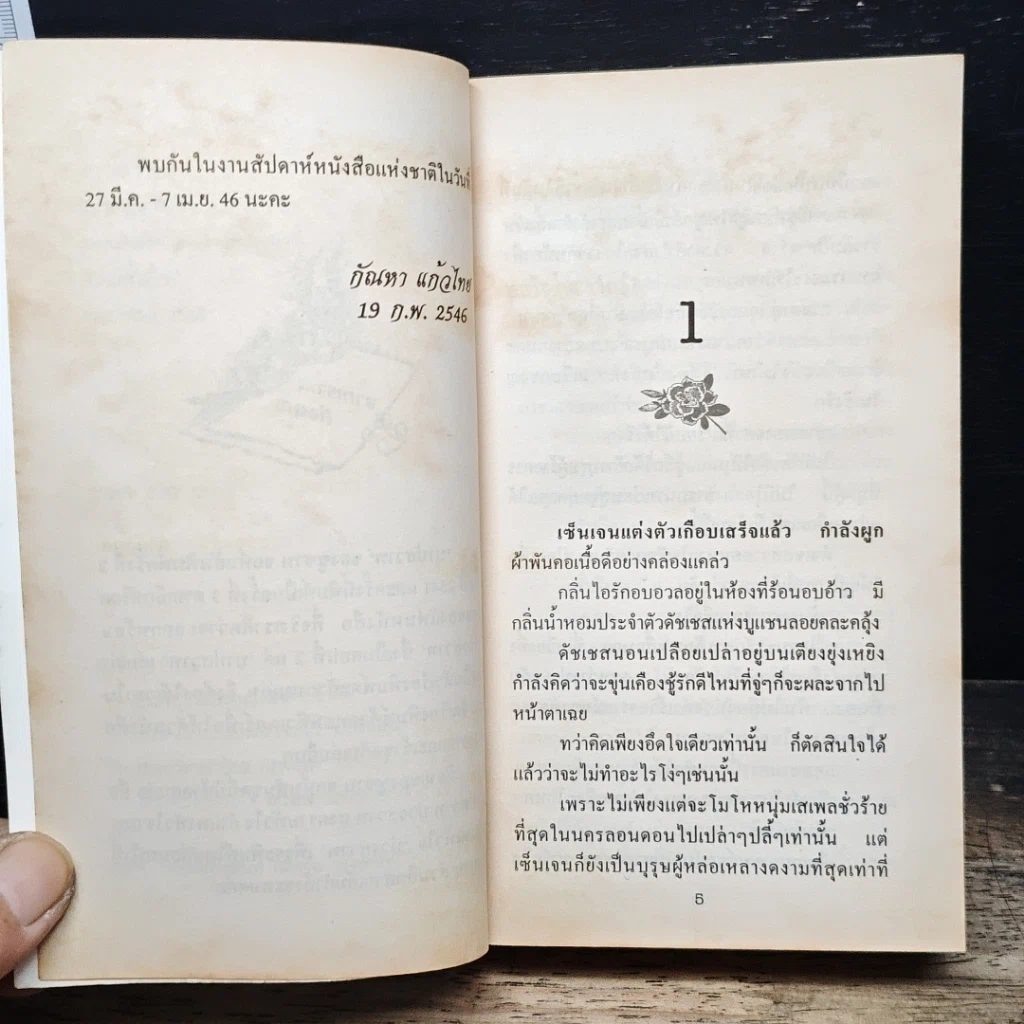 พบกันในงานสัปดาห์หนังสือแห่งชาติในวันที่
27 มี.ค. - 7 เม.ย. 46 นะคะ
กัณหา แก้วไทย
19 ก.พ. 2546
1
เซ็นเจนแต่งตัวเกือบเสร็จแล้ว กำลังผูก
ผ้าพันคอเนื้อดีอย่างคล่องแคล่ว
กลิ่นไอรักอบอวลอยู่ในห้องที่ร้อนอบอ้าว มี
กลิ่นน้ำหอมประจำตัวดัชเชสแห่งบูแชนลอยคละคลุ้ง
ดัชเชสนอนเปลือยเปล่าอยู่บนเตียงยุ่งเหยิง
กำลังคิดว่าจะขุ่นเคืองชู้รักดีไหมที่จู่ๆก็จะผละจากไป
หน้าตาเฉย
ทว่าคิดเพียงอึดใจเดียวเท่านั้น ก็ตัดสินใจได้
แล้วว่าจะไม่ทำอะไรโง่ๆเช่นนั้น
เพราะไม่เพียงแต่จะโมโหหนุ่มเสเพลชั่วร้าย
ที่สุดในนครลอนดอนไปเปล่าๆปลี้ๆเท่านั้น แต่
เซ็นเจนก็ยังเป็นบุรุษผู้หล่อเหลางดงามที่สุดเท่าที่
5